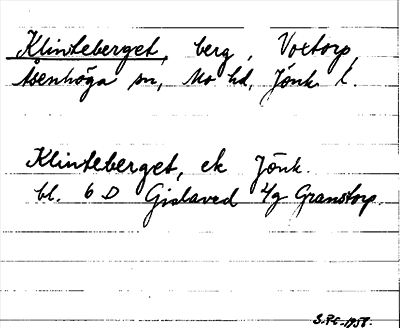 Klinteberget, berg, Voxtorp,
Åsenhöga sn, Mo hd, Jönk. l.
Klinteberget, ek Jönk.
bl. 6 D Gislaved 4g Granstorp.
S.P.C-1958.